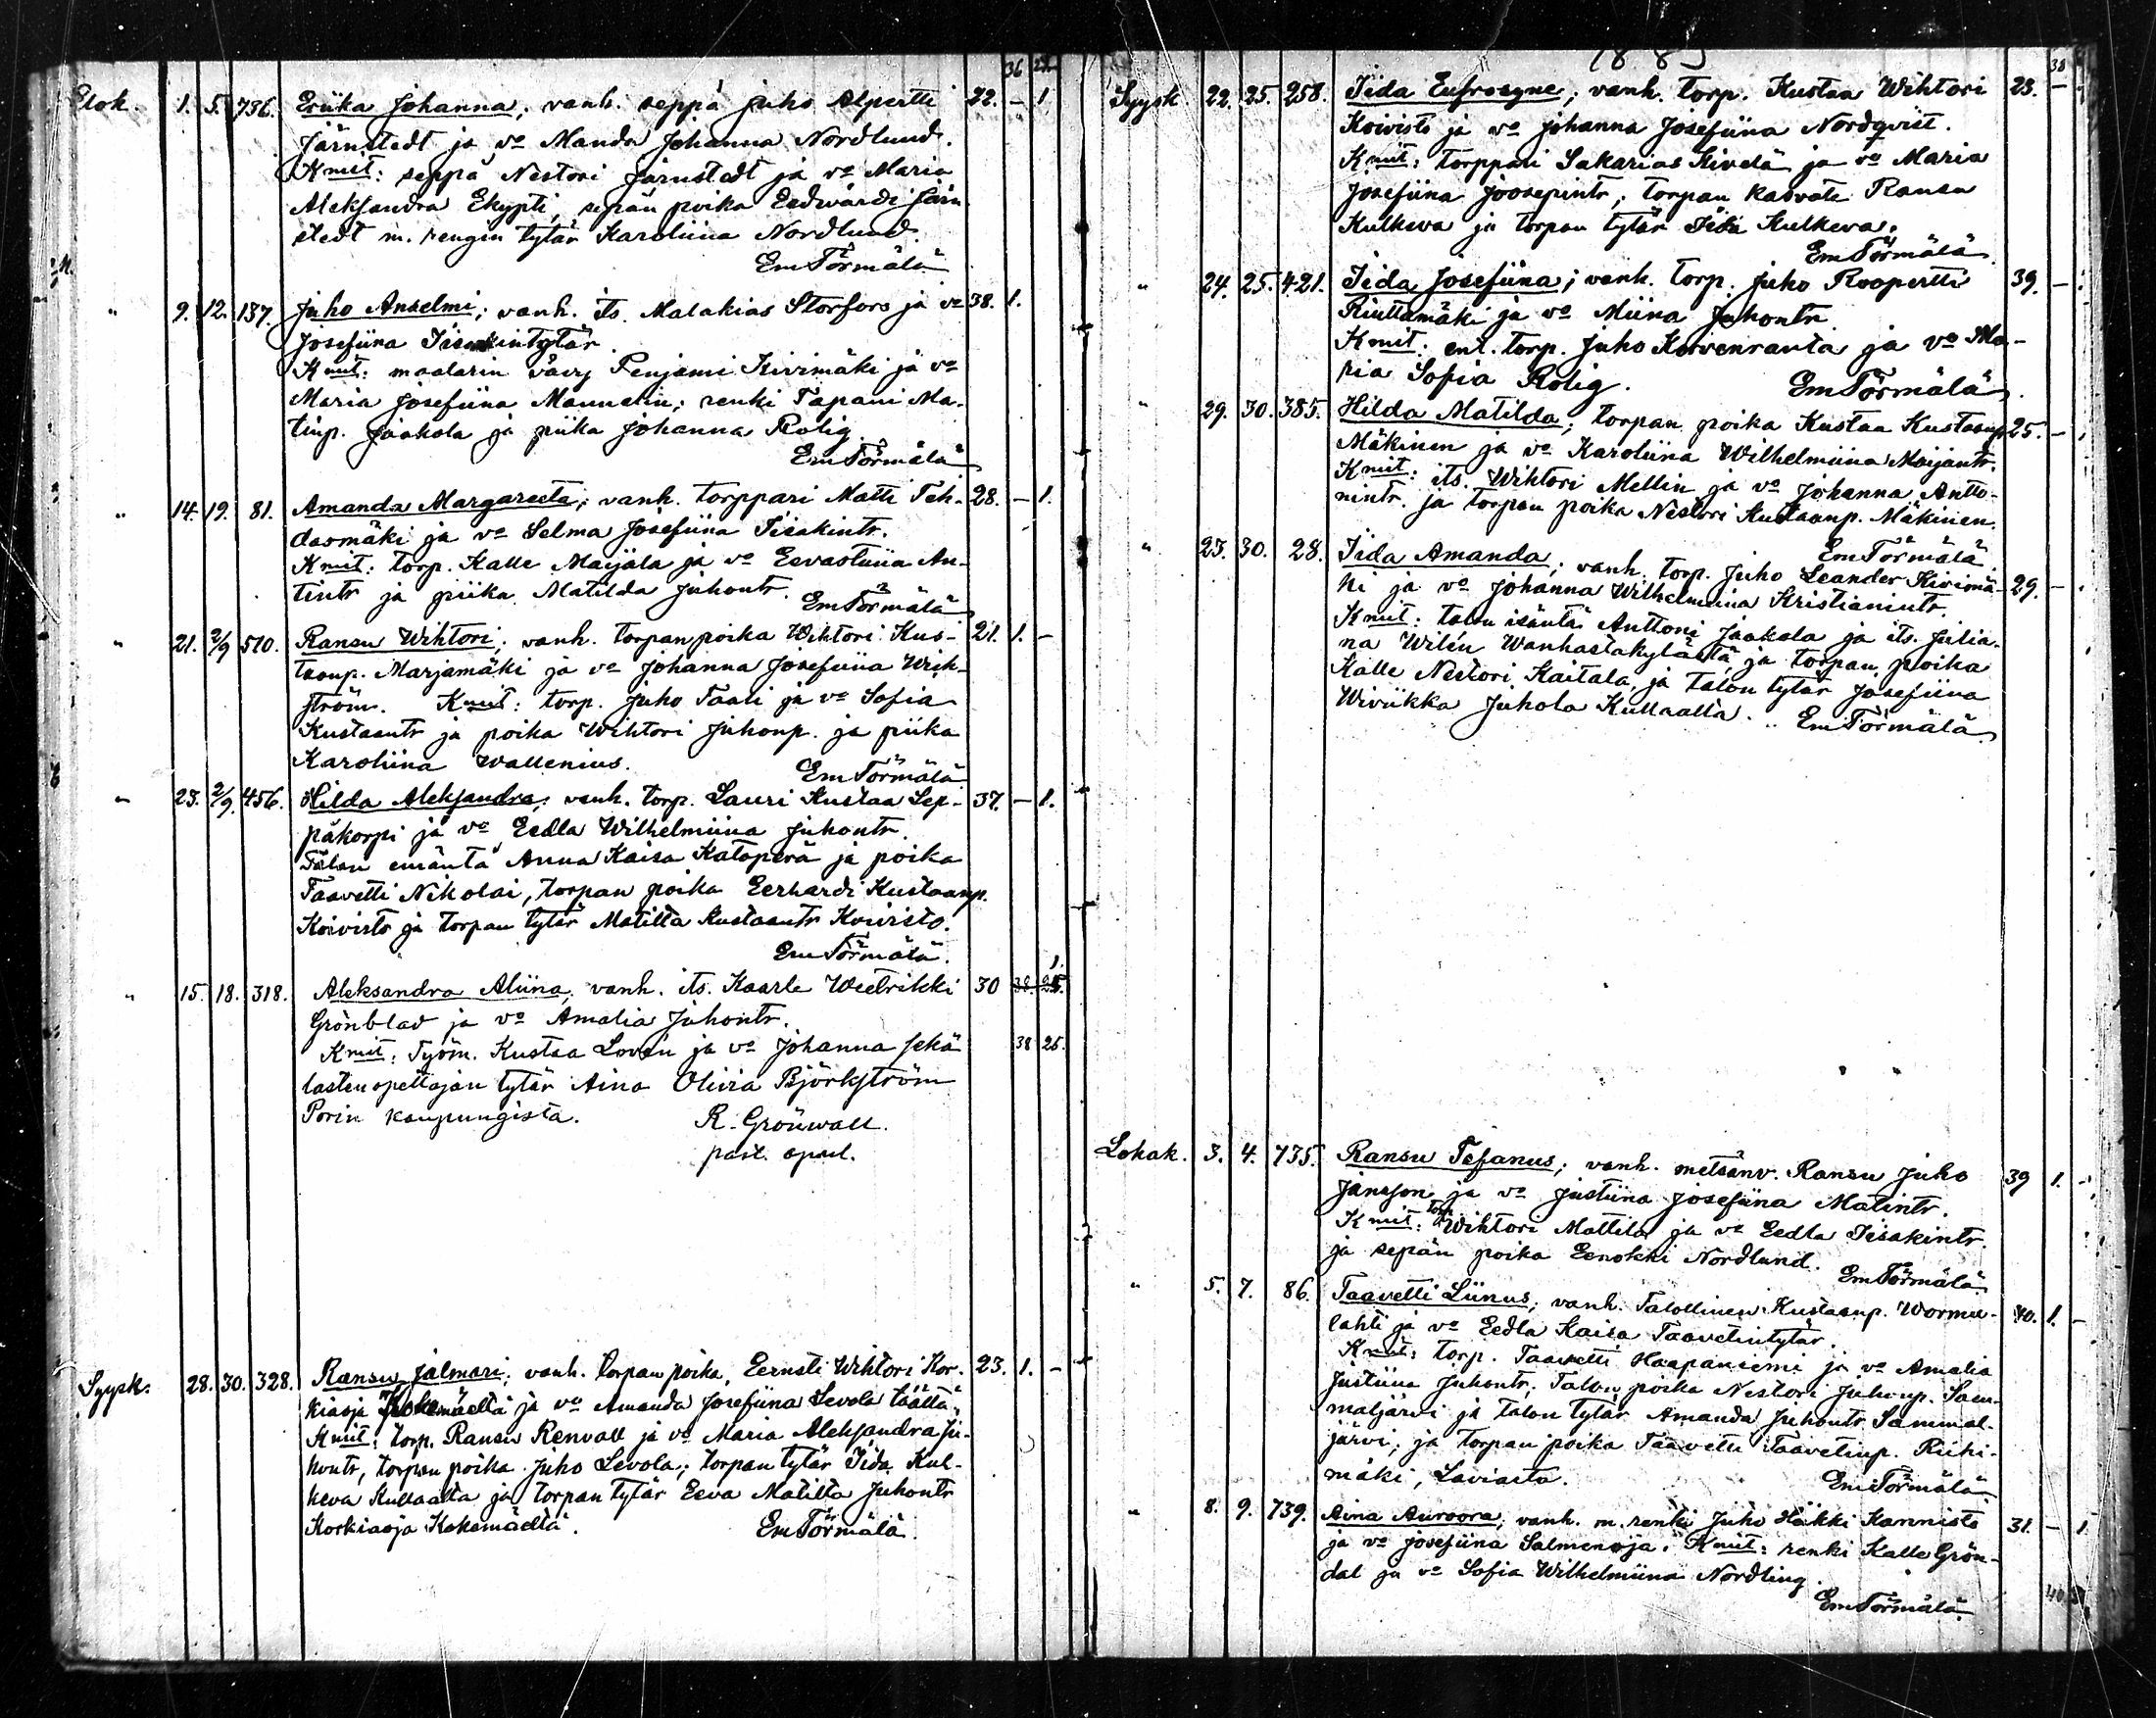 36
Elok. 1. 5. 736. Eriika Johanna; vanh. seppä Juho Alpertti 22. - 1
Järnstedt ja vo Manda Johanna Nordlund.
Kmit: seppä Nestori Järnstedt ja vo Maria
Aleksandra Ekypti, sepän poika Eedwardi Järn
stedt m. rengin tytär Karoliina Nordlund.
Em Törmälä
" 9. 12. 137. Juho Anselmi; vanh. its. Malakias Storfors ja vo 38. 1.
Josefiina Iisakintytär
Kmit: maalarin Penjami Kivimäki ja vo
Maria Josefiina Mannelin; renki Tapani Ma-
tinp. Jaakola ja piika Johanna Rolig
Em Törmälä
" 14. 19. 81. Amanda Margareeta; vanh. torppari Matti Teh- 28. - 1.
dasmäki ja vo Selma Josefiina Iisakintr.
Kmit: torp. Kalle Maijala ja vo Eevastiina An-
tintr ja piika Matilda Juhontr.
Em Törmälä
" 21. 2/9 510. Ransu Wihtori; vanh. torpan poika Wihtori Kus- 21. 1. -
taanp. Marjamäki ja vo Johanna Josefiina Wik-
ström. Kmit: torp. Juho Taati ja vo Sofia
Kustaantr ja poika Wihtori Juhonp. ja piika
Karoliina Wallenius.
Em Törmälä
" 23. 2/9. 456. Hilda Aleksandra; vanh. torp. Lauri Kustaa Lep- 37. - 1.
päkorpi ja vo Eedla Wilhelmiina Juhontr.
Talon emäntä Anna Kaisa Katoperä ja poika
Taavetti Nikolai, torpan poika Eerhardi Kustaanp.
Koivisto ja torpan tytär Matilta Kustaantr Koivisto.
Em Törmälä.
1.
" 15. 18. 318. Aleksandra Aliina, vanh. its. Kaarle Weetrikki 30 38. 25.
Grönblad ja vo Amalia Juhontr.
Kmit: Työm. Kustaa Lovén ja vo Johanna sekä 38 25.
lasten opettajan tytär Aina Olivia Björkström
Porin kaupungista. R. Grönwall.
past. apul.
Syysk. 28. 30. 328. Ransu Jalmari; vanh. torpan poika, Eernsti Wihtori Kor- 23. 1. -
kiaoja Kokemäeltä ja vo Amanda Josefiina Levola täältä.
Kmit: torp. Ransu Renvall ja vo Maria Aleksandra Ju-
hontr, torpan poika Juho Levola; torpan tytär Iida Kul-
keva Kullaalta ja torpan tytär Eeva Matilta Juhontr
Korkiaoja Kokemäeltä. Em Törmälä.
1885
38
Syysk 22. 25. 258. Iida Eufrosyne; vanh. torp. Kustaa Wihtori 23. -
Koivisto ja vo Johanna Josefiina Nordqvist.
Kmit: torppari Sakarias Kivelä ja vo Maria
Josefiina Joosepintr; torpan kasvate Ransu
Kulkeva ja torpan tytär Iida Kulkeva.
Em Törmälä
" 24. 25. 421. Iida Josefiina; vanh. torp. Juho Roopertti 39. -
Riuttamäki ja vo Miina Juhontr
Kmit. ent. torp. Juho Korvenranta ja vo Ma-
ria Sofia Rolig.
Em Törmälä.
" 29. 30. 385. Hilda Matilda; torpan poika Kustaa Kustaanp 25. -
Mäkinen ja vo Karoliina Wilhelmiina Maijantr.
Kmit: its. Wihtori Mellin ja vo Johanna Antto-
nintr. ja torpan poika Nestori Kustaanp. Mäkinen.
Em Törmälä
" 23. 30. 28. Iida Amanda; vanh. torp. Juho Leander Kivimä- 29. -
ki ja vo Johanna Wilhelmiina Kristianintr.
Kmit: talon isäntä Anttoni Jaakola ja its. Julia-
na Wilén Wanhastakylästä, ja torpan poika
Kalle Nestori Kaitala, ja talon tytär Josefiina
Wiviikka Juhola Kullaalta. Em Törmälä
Lokak. 3. 4. 735. Ransu Tefanus; vanh. metsänv. Ransu Juho 39 1. -
Jansson ja vo Justiina Josefiina Matintr.
Kmit: torp Wihtori Mattila ja vo Eedla Iisakintr.
ja sepän poika Eenokki Nordlund.
Em Törmälä
" 5. 7. 86. Taavetti Liinus; vanh. Talollinen Kustaanp. Wormu- 40. 1. -
lahti ja vo Eedla Kaisa Taavetintytär.
Kmit: torp. Taavetti Haapaniemi ja vo Amalia
Justiina Juhontr; Talon poika Nestori Juhonp. Sam-
maljärvi ja talon tytär Amanda Juhontr Sammal-
järvi, ja torpan poika Taavetti Taavetinp. Riihi-
mäki, Laviasta.
Em Törmälä
" 8. 9. 739. Aina Auroora; vanh. m. renki Juho Häkki Kannisto 31. - 1.
ja vo Josefiina Salmenoja. Kmit: renki Kalle Grön-
dal ja vo Sofia Wilhelmiina Nordling.
Em Törmälä
40